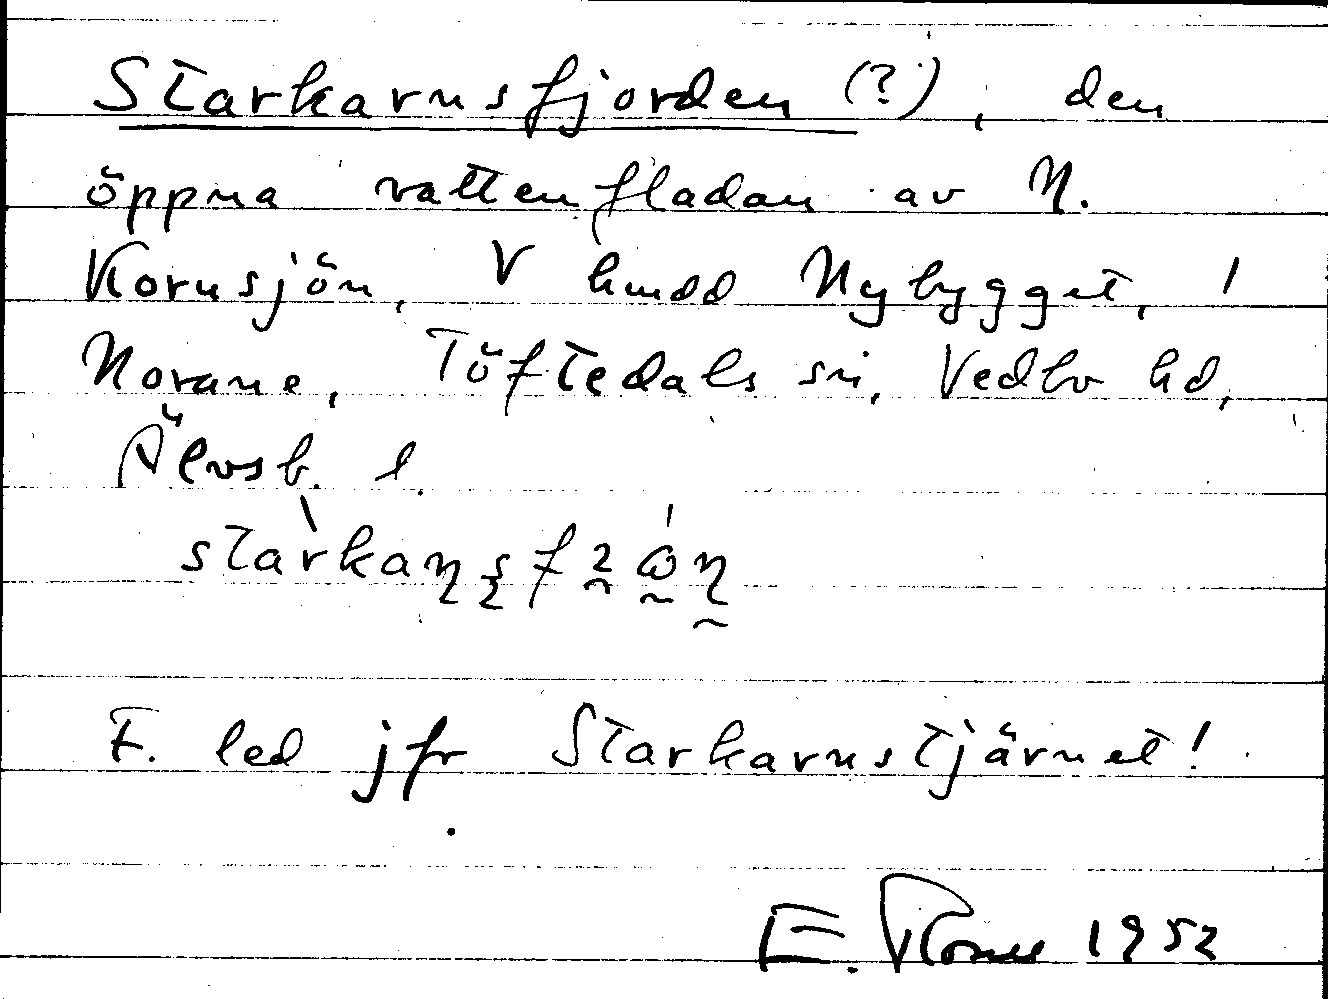 Starkarnsfjorden (?), den
öppna vattenfladan av N.
Kornsjön, V hmdd Nybygget, !
Norane, Töftedals sn, Vedbo hd,
Älvsb. l.
F. led jfr Starkarnstjärnet!
E. 1952